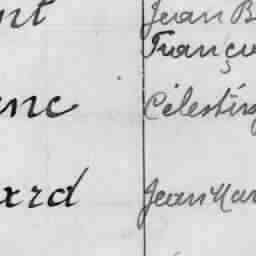 nt Jean B
Franço
enc Célestin
ard Jean Mar